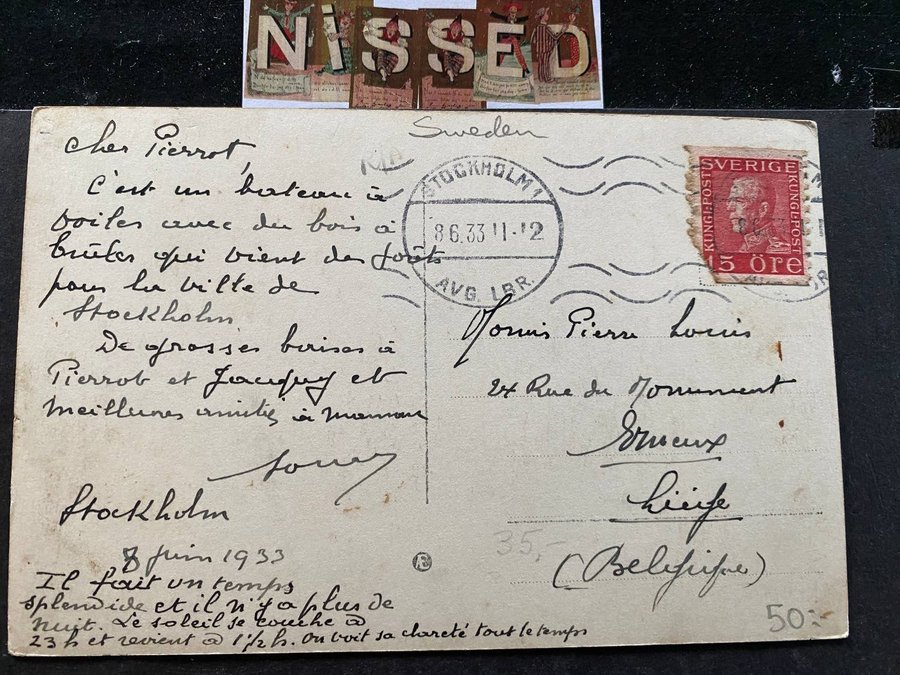 NISSED
Sweden
Cher Pierrot,
C'est un bateau à
voiles avec du bois à
brûler qui vient des forêts
pour la ville de
Stockholm
De grosses baises à
Pierrot et Jacquy et
meilleures amitiés à Maman
Stockholm
8 Juin 1933
Il fait un temps
splendide et il n'y a plus de
nuit. Le soleil se couche à
23 h et revient à 1 1/2 h. On voit sa clareté tout le temps
STOCKHOLM 1
8.6.33 11-12
AVG. LBR.
SVERIGE
KUNGL. POST
KUNGL. POST
15 ÖRE
Pierre Louis
24 Rue du Monument
Liége
(Belgique)
35,-
50:-